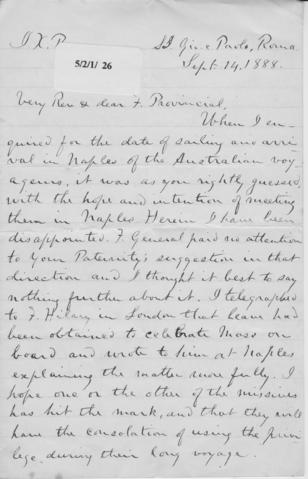 J. X. P.
SS. Gio. e Paolo, Roma
5/2/1/ 26
Sept. 14, 1888.
Very Rev. & dear F. Provincial,
When I en-
quired for the date of sailing and arri-
val in Naples of the Australian voy-
agers, it was as you rightly guessed,
with the hope and intention of meeting
them in Naples. Herein I have been
disappointed. F. General paid no attention
to Your Paternity's suggestion in that
direction and I thought it best to say
nothing further about it. I telegraphed
to F. Hilary in London that leave had
been obtained to celebrate Mass on
board and wrote to him at Naples
explaining the matter more fully. I
hope one or the other of the missives
has hit the mark, and that they will
have the consolation of using the privi-
lege, during their long voyage.